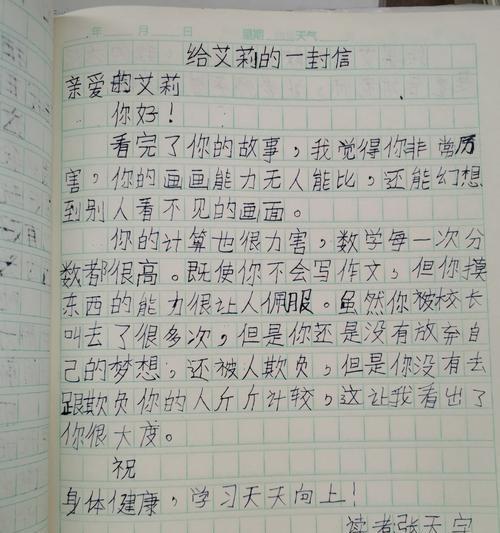 年 月 日 星期 天气
给艾莉的一封信
亲爱的艾莉
你好！
看完了你的故事，我觉得你非常厉
害，你的画画能力无人能比，还能幻想
到别人看不见的画面。
你的计算也很力害，数学每一次分
数都很高。既使你不会写作文，但你摸
东西的能力很让人佩服。虽然你被校长
叫去了很多次，但是你还是没有放弃自
己的梦想，还被人欺负，但是你没有去
跟欺负你的人斤斤计较，这让我看出了
你很大度。
祝
身体健康，学习天天向上！
读者张天宇